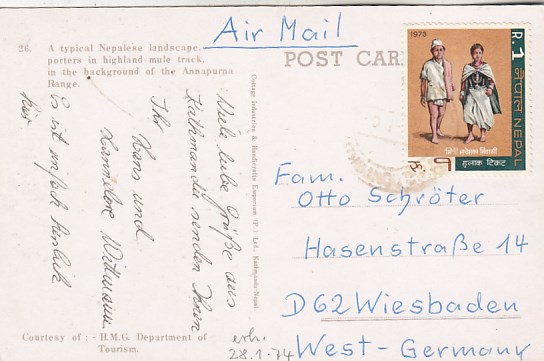 Air Mail
26. A typical Nepalese landscape,
porters in highland-mule track,
in the background of the Annapurna
Range.
POST CAR
Cottage Industries & Handicrafts Emporium (P.) Ltd., Kathmandu-Nepal.
1973
R. 1 नेपाल NEPAL
रू. १ हुलाक टिकट
Viele liebe Grüße aus
Kathmandu senden Ihnen
Ihr
Hans und
Hannelore Wittmann.
Es ist einfach herrlich
hier
Fam.
Otto Schröter
Hasenstraße 14
D62 Wiesbaden
West-Germany
Courtesy of : - H.M.G. Department of
Tourism.
erh.
28.1.74